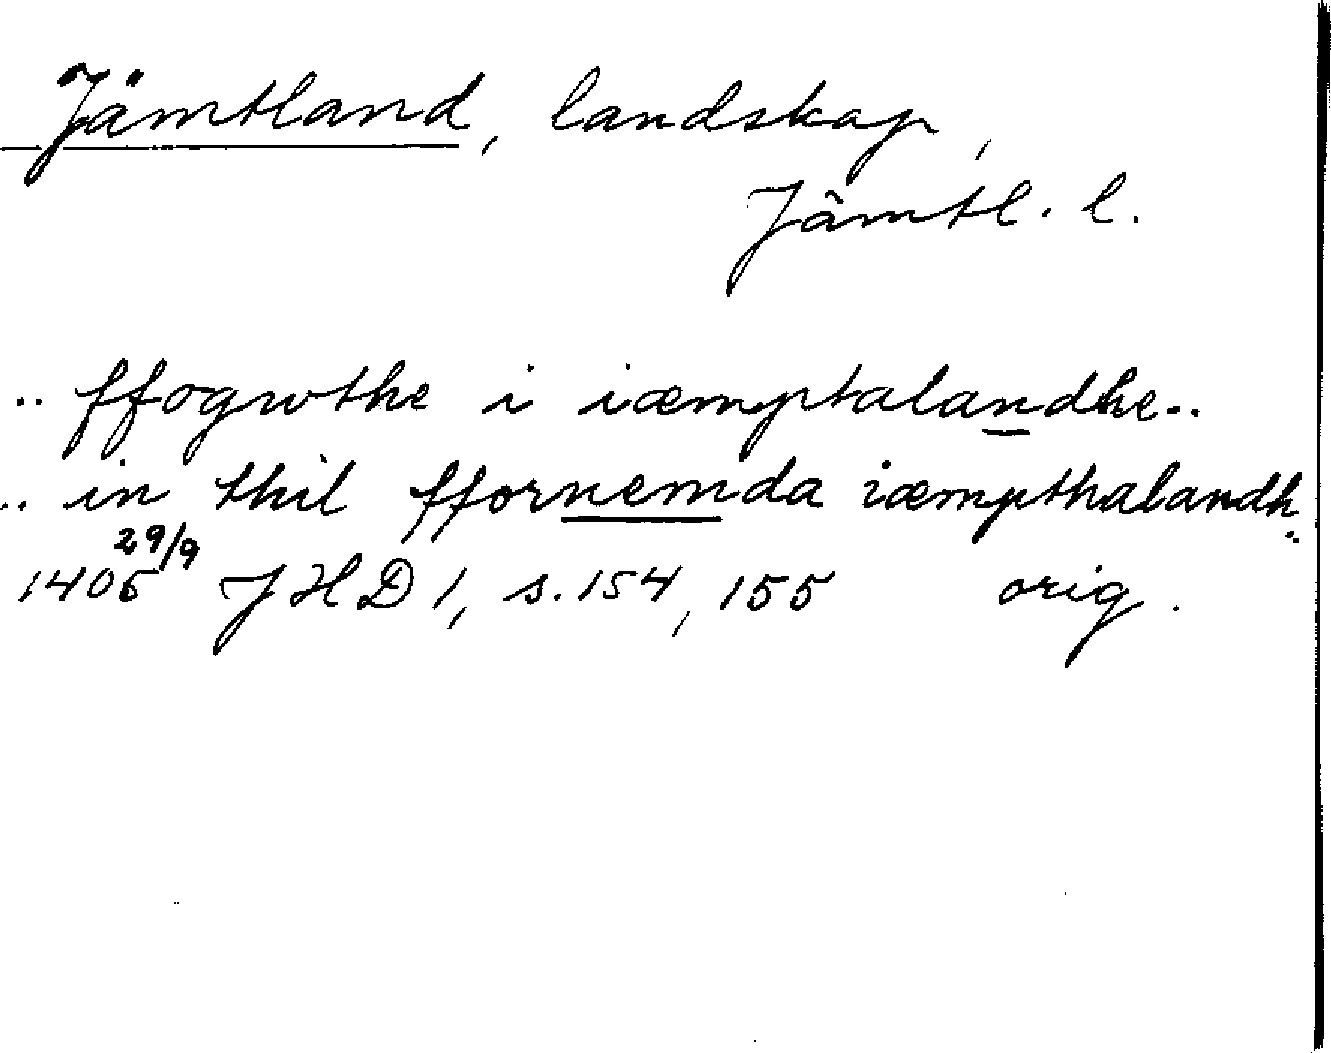 Jämtland, landskap,
Jämtl. l.
.. ffogwthe i iæmptalandhe..
.. in thil ffornemda iæmpthalandh..
29/9
1405 JHD 1, s. 154, 155 orig.